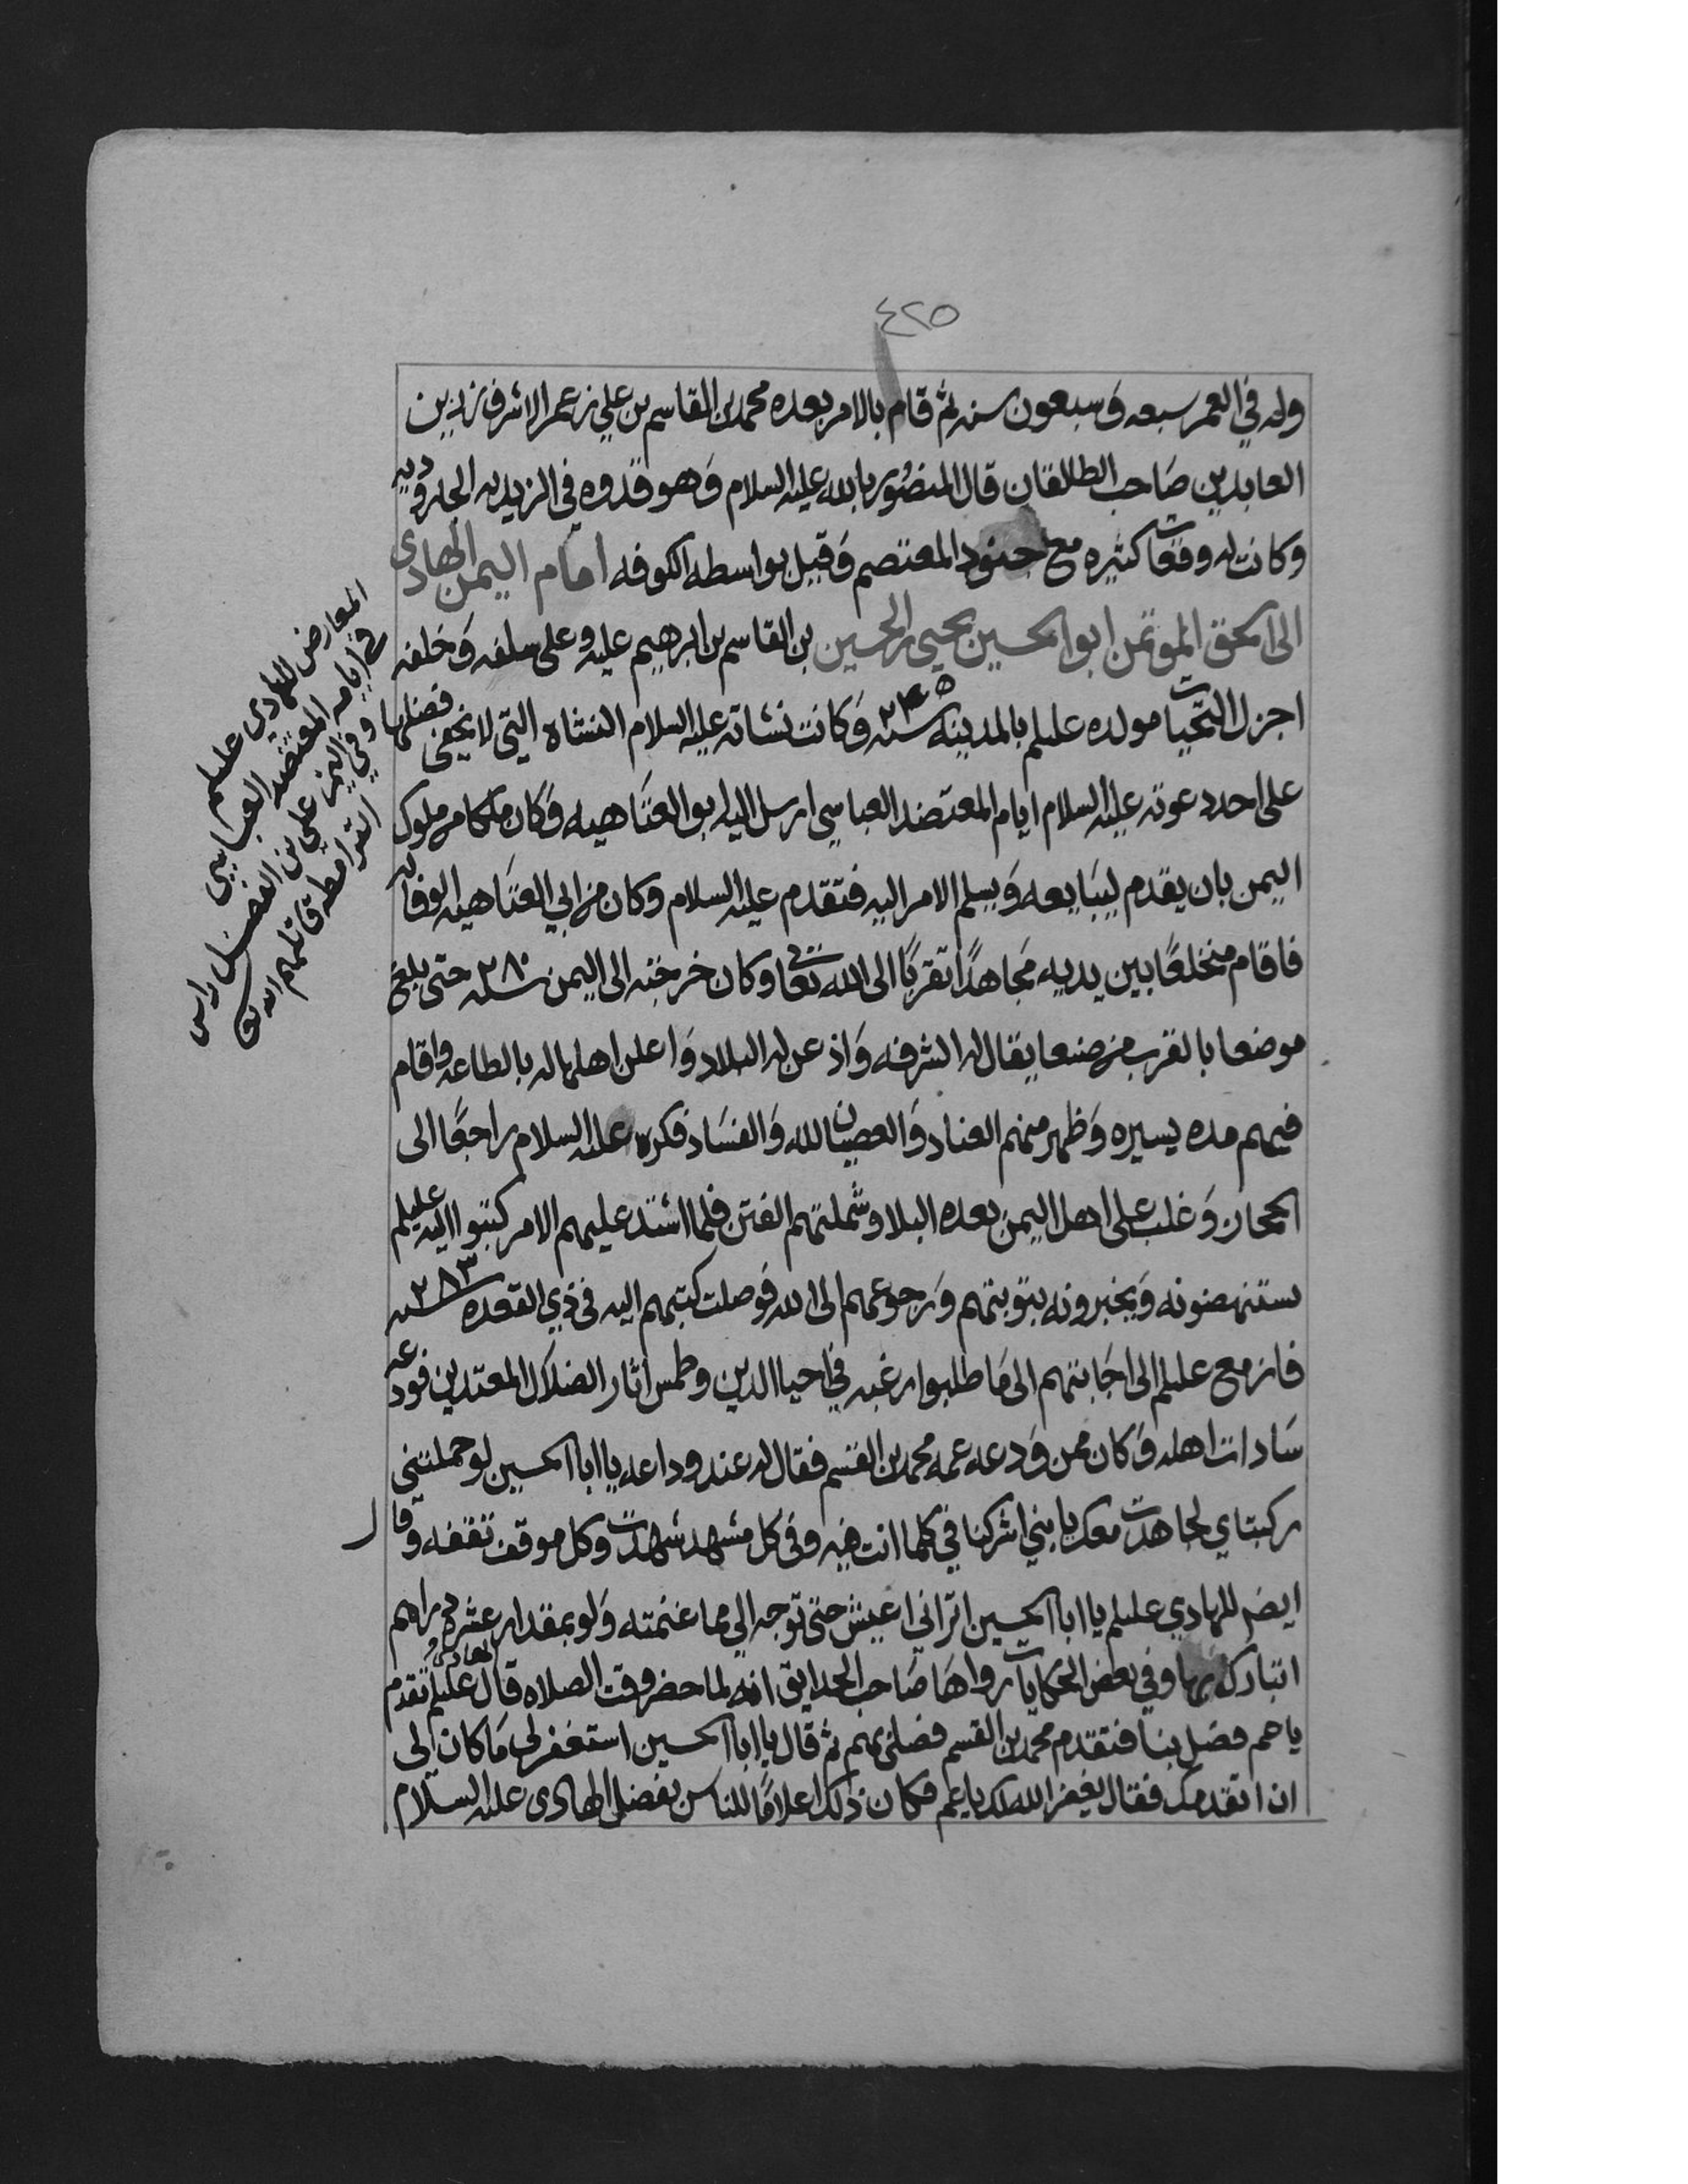 ٤٢٥
وله في العمر سبعه وَسبعون سنه ثم قام بالامر بعده محمد بن القاسم بن علي بن عمر الاشرف بن زين
العابدين صَاحب الطالقان قال المنصُور بالله عليه السلام وَهو قدوه في الزيديه الجاروديه
وكانت له وقعات كثيره مع جنود المعتصم وَقيل بواسطه الكوفه امام اليمن الهادي
الى الحق المؤتمن ابو الحسين يحيى بن الحسين بن القاسم بن ابرهيم عليه وعلى سلفه وَخلفه
اجزل التحيات مولده عليلم بالمدينه سنه ٢٤٥ وَكانت نشاته عليه السلام النشاه التي لا يخفى فضلها
على احد دعوته عليه السلام ايام المعتضد العباسي ارسل اليه ابو العتَاهيه وَكان ملكا من ملوك
اليمن بان يقدم ليبَايعه وَيسلم الامر اليه فتقدم عليه السلام وكان من ابي العتَاهيه الوفا له
فاقام منخلعًا بين يديه مجَاهدًا تقربًا الى الله تعالى وكان خرجته الى اليمن سنه ٢٨٠ حتى بلغ
موضعا بالقرب من صنعا يقال له الشرفه وَاذعن له البلاد وَاعلن اهلها له بالطاعه واقام
فيهم مده يسيره وَظهر منهم العناد وَالعصيان لله وَالفسَاد فكره عليه السلام راجعًا الى
الحجاز وَغلب على اهل اليمن بعده البلا وشملتهم الفتن فلما اشتد عليهم الامر كتبوا اليه عليلم
يستنهضونه وَيخبرونه بتوبتهم وَرجوعهم الى الله فوَصلت كتبهم اليه في ذي القعده سنه ٢٨٣
فازمع عليلم الى اجَابتهم الى مَا طلبوا رغبه في احيا الدين وطمس اثار الضلال المعتدين فودعه
سَادات اهله وَكان ممن وَدعه عمه محمد بن القسم فقال له عند وداعه يا ابا الحسين لو حملتني
ركبتاي لجاهدت معك يا بني اشركنا في كلما انت فيه وفي كل مشهد شهدت وكل موقف تقفه وقال
ايضا للهادي عليلم يا ابا الحسين اتراني اعيش حتى توجه الي مما غنمته وَلو بمقدار عشره دراهم
اتبارك بها وفي بعض الحكايات رواهَا صَاحب الحدايق انه لما حضر وقت الصلاه قال الهادي عليلم تقدم
يا عم فصَل بنا فتقدم محمد بن القسم فصَلى بهم ثم قال يا ابا الحسين استغفر لي مَا كان لي
ان اتقدمك فقال يغفر الله لك يا عم فكان ذلك اعلامًا للناس بفضل الهادى عليه السلام
المعارض للهادي عليلم
في ايامه المعتضد العباسي
وفي اليمن علي بن الفضل راس
القرامطه قاتلهم الله تع